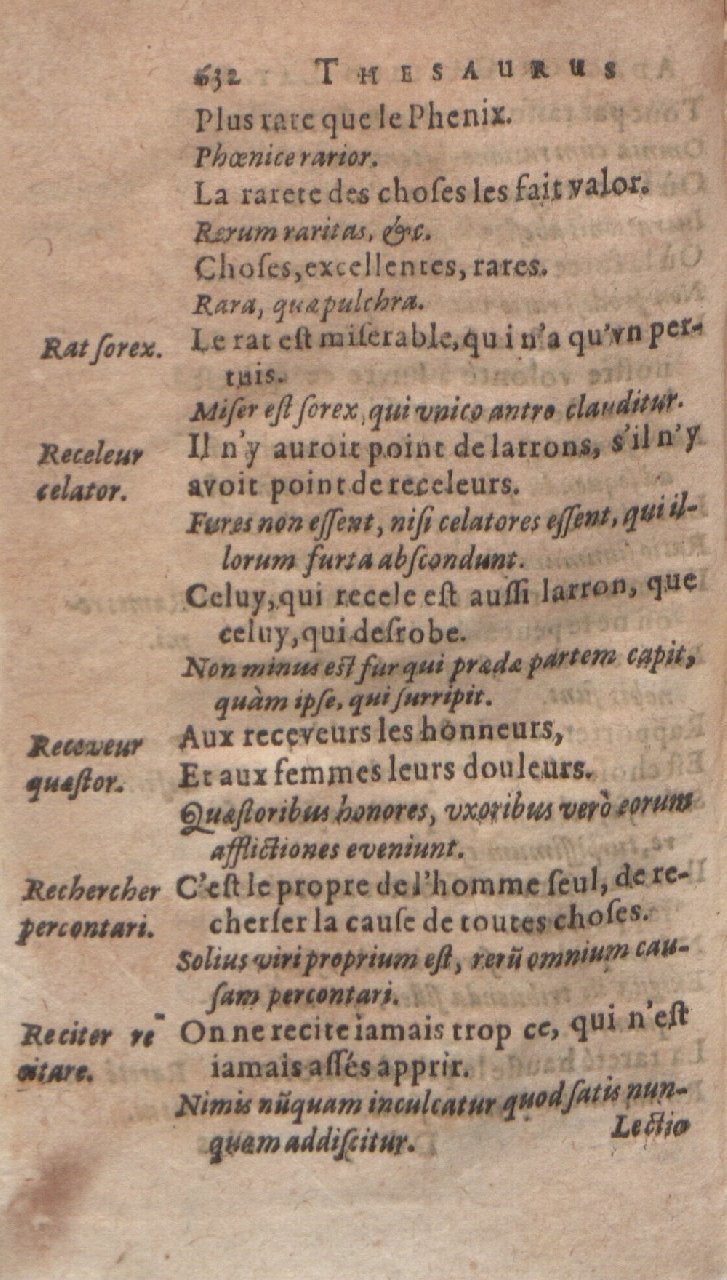 632 THESAURUS
Plus rare que le Phenix.
Phœnice rarior.
La rarete des choſes les fait valor.
Rerum raritas, &c.
Choſes, excellentes, rares.
Rara, quæ pulchra.
Rat ſorex.
Le rat eſt miſerable, qui n'a qu'vn per-
tuis.
Miſer eſt ſorex, qui vnico antro clauditur.
Receleur
celator.
Il n'y auroit point de larrons, s'il n'y
avoit point de receleurs.
Fures non eſſent, niſi celatores eſſent, qui il-
lorum furta abſcondunt.
Celuy, qui recele eſt auſſi larron, que
celuy, qui deſrobe.
Non minus eſt fur qui prædæ partem capit,
quàm ipſe, qui ſurripit.
Receveur
quæſtor.
Aux receveurs les honneurs,
Et aux femmes leurs douleurs.
Quæſtoribus honores, vxoribus verò eorum
afflictiones eveniunt.
Rechercher
percontari.
C'eſt le propre de l'homme ſeul, de re-
cherſer la cauſe de toutes choſes.
Solius viri proprium eſt, rerū omnium cau-
ſam percontari.
Reciter re-
citare.
On ne recite iamais trop ce, qui n'eſt
iamais aſſés apprir.
Nimis nūquam inculcatur quod ſatis nun-
quam addiſcitur.
Lectio